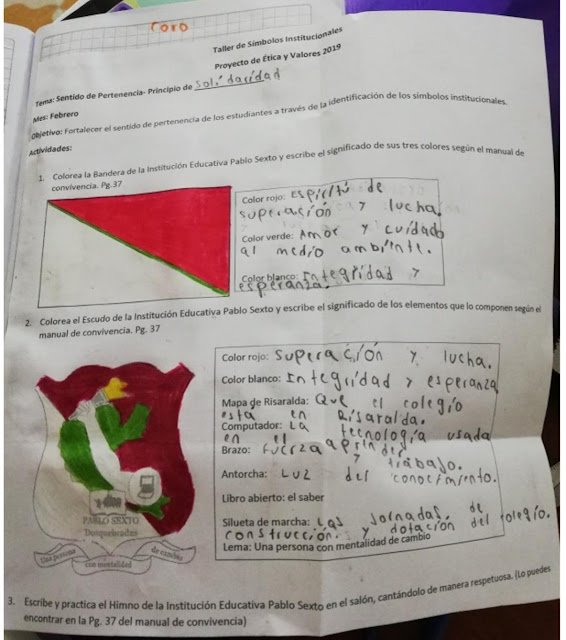 Coro
Taller de Símbolos Institucionales
Proyecto de Ética y Valores 2019
Tema: Sentido de Pertenencia- Principio de Solidaridad
Mes: Febrero
Objetivo: Fortalecer el sentido de pertenencia de los estudiantes a través de la identificación de los símbolos institucionales.
Actividades:
1. Colorea la Bandera de la Institución Educativa Pablo Sexto y escribe el significado de sus tres colores según el manual de
convivencia. Pg.37
Color rojo: Espíritu de
superación y lucha.
Color verde: Amor y cuidado
al medio ambiente.
Color blanco: Integridad y
esperanza.
2. Colorea el Escudo de la Institución Educativa Pablo Sexto y escribe el significado de los elementos que lo componen según el
manual de convivencia. Pg. 37
Color rojo: Superación y lucha.
Color blanco: Integridad y esperanza
Mapa de Risaralda: Que el colegio
esta en Risaralda.
Computador: La tecnología usada
en el aprinder
Brazo: fuerza y trabajo.
Antorcha: Luz del conocimiento.
Libro abierto: el saber
Silueta de marcha: Las Jornadas, de
construcción y dotación del colegio.
Lema: Una persona con mentalidad de cambio
PABLO SEXTO
Dosquebradas
Una persona
con mentalidad
de cambio
3. Escribe y practica el Himno de la Institución Educativa Pablo Sexto en el salón, cantándolo de manera respetuosa. (Lo puedes
encontrar en la Pg. 37 del manual de convivencia)